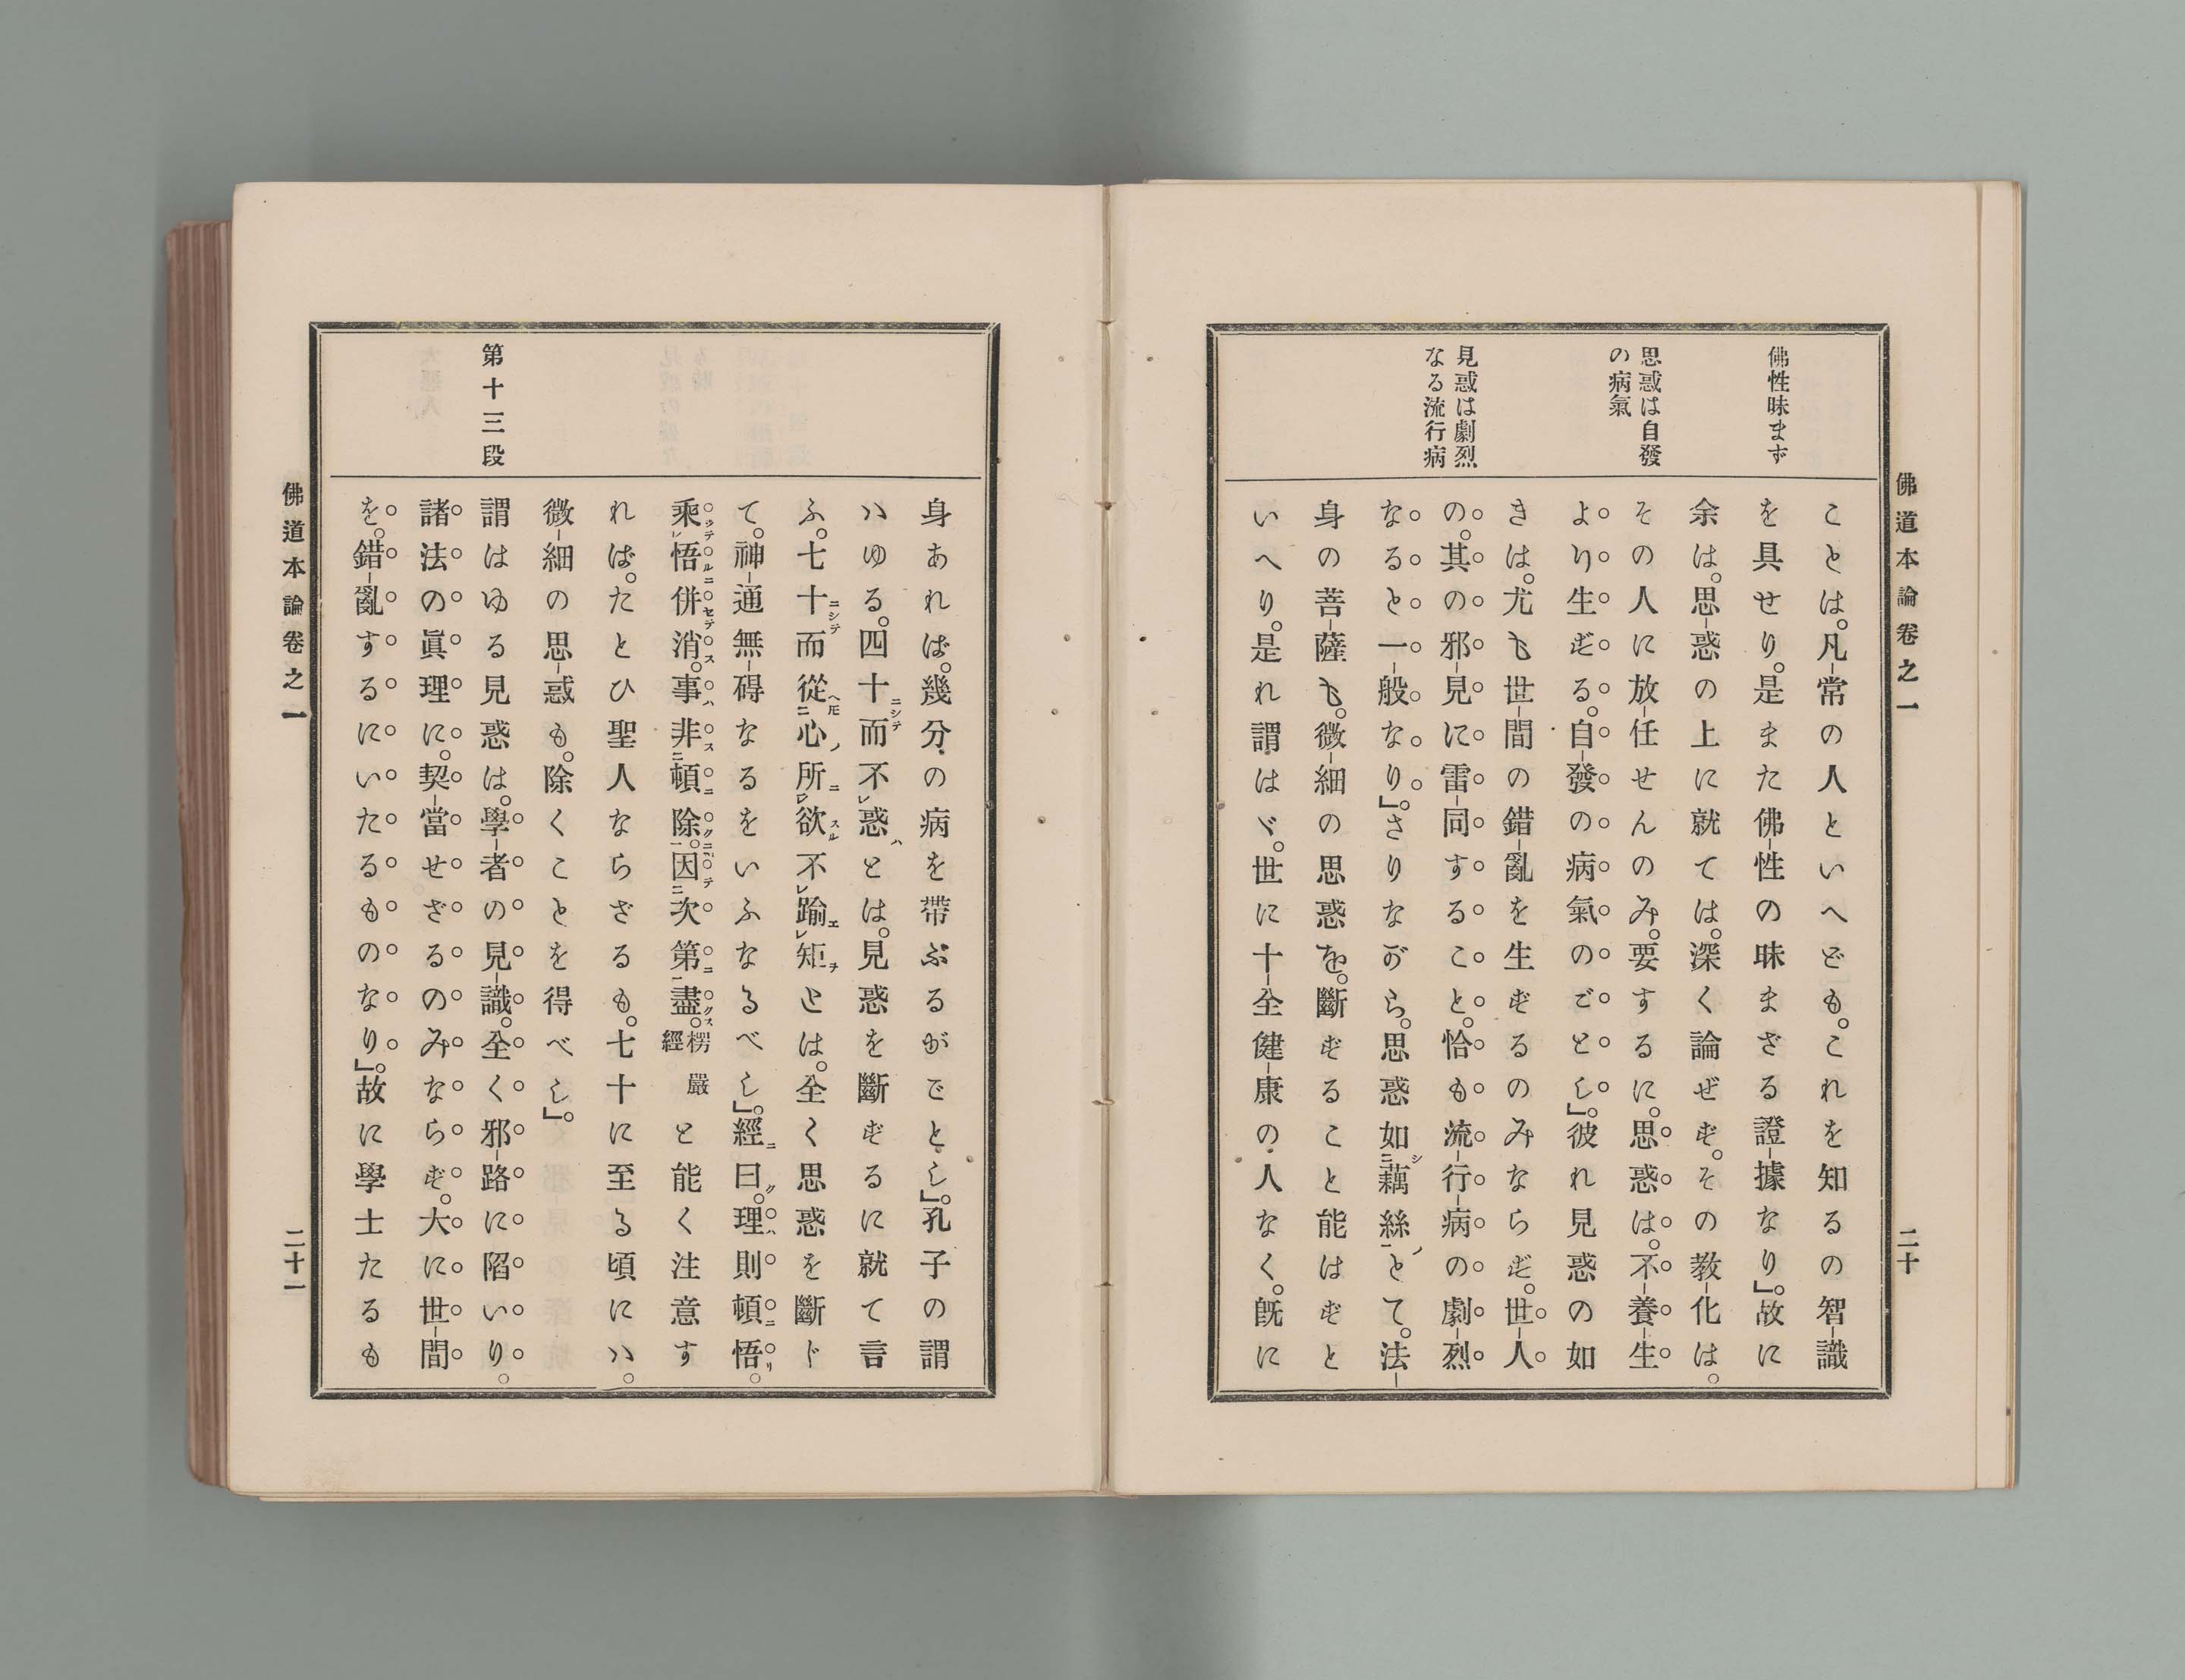 佛道本論卷之一
二十
佛性昧まず
思惑は自發
の病氣
見惑は劇烈
なる流行病
ことは。凡常の人といへども。これを知るの智識
を具せり。是また佛性の昧まざる證據なり」。故に
余は。思惑の上に就ては。深く論ぜず。その教化は。
その人に放任せんのみ。要するに。思惑は。不養生
より生ずる。自發の病氣のごとし」。彼れ見惑の如
きは。尤も世間の錯亂を生ずるのみならず。世人
の。其の邪見に雷同すること。恰も流行病の劇烈
なると一般なり」。さりながら。思惑如ニシ藕絲一ノとて。法
身の菩薩も。微細の思惑を。斷ずること能はずと
いへり。是れ謂はゞ。世に十全健康の人なく。既に
身あれば。幾分の病を帶ぶるがごとし」。孔子の謂
ハゆる。四十ニシテ而不レ惑ハとは。見惑を斷ずるに就て言
ふ。七十ニシテ而從ヘ𪜈ニ心ノ所ニロ欲スル不レ踰エレ矩ヲとは。全く思惑を斷じ
て。神通無碍なるをいふなるべし」。經ニ曰ク。理ハ則頓ニ悟リ。
乘ツテレ悟ルニ併セテ消ス。事ハ非スニ頓ニ除クニ一。因テニ次第ニ一盡クス。楞嚴經と能く注意す
れば。たとひ聖人ならざるも。七十に至る頃にハ。
微細の思惑も。除くことを得べし」。
第十三段
謂はゆる見惑は。學者の見識。全く邪路に陷いり。
諸法の眞理に。契當せざるのみならず。大に世間
を。錯亂するにいたるものなり」。故に學士たるも
佛道本論卷之一
二十一